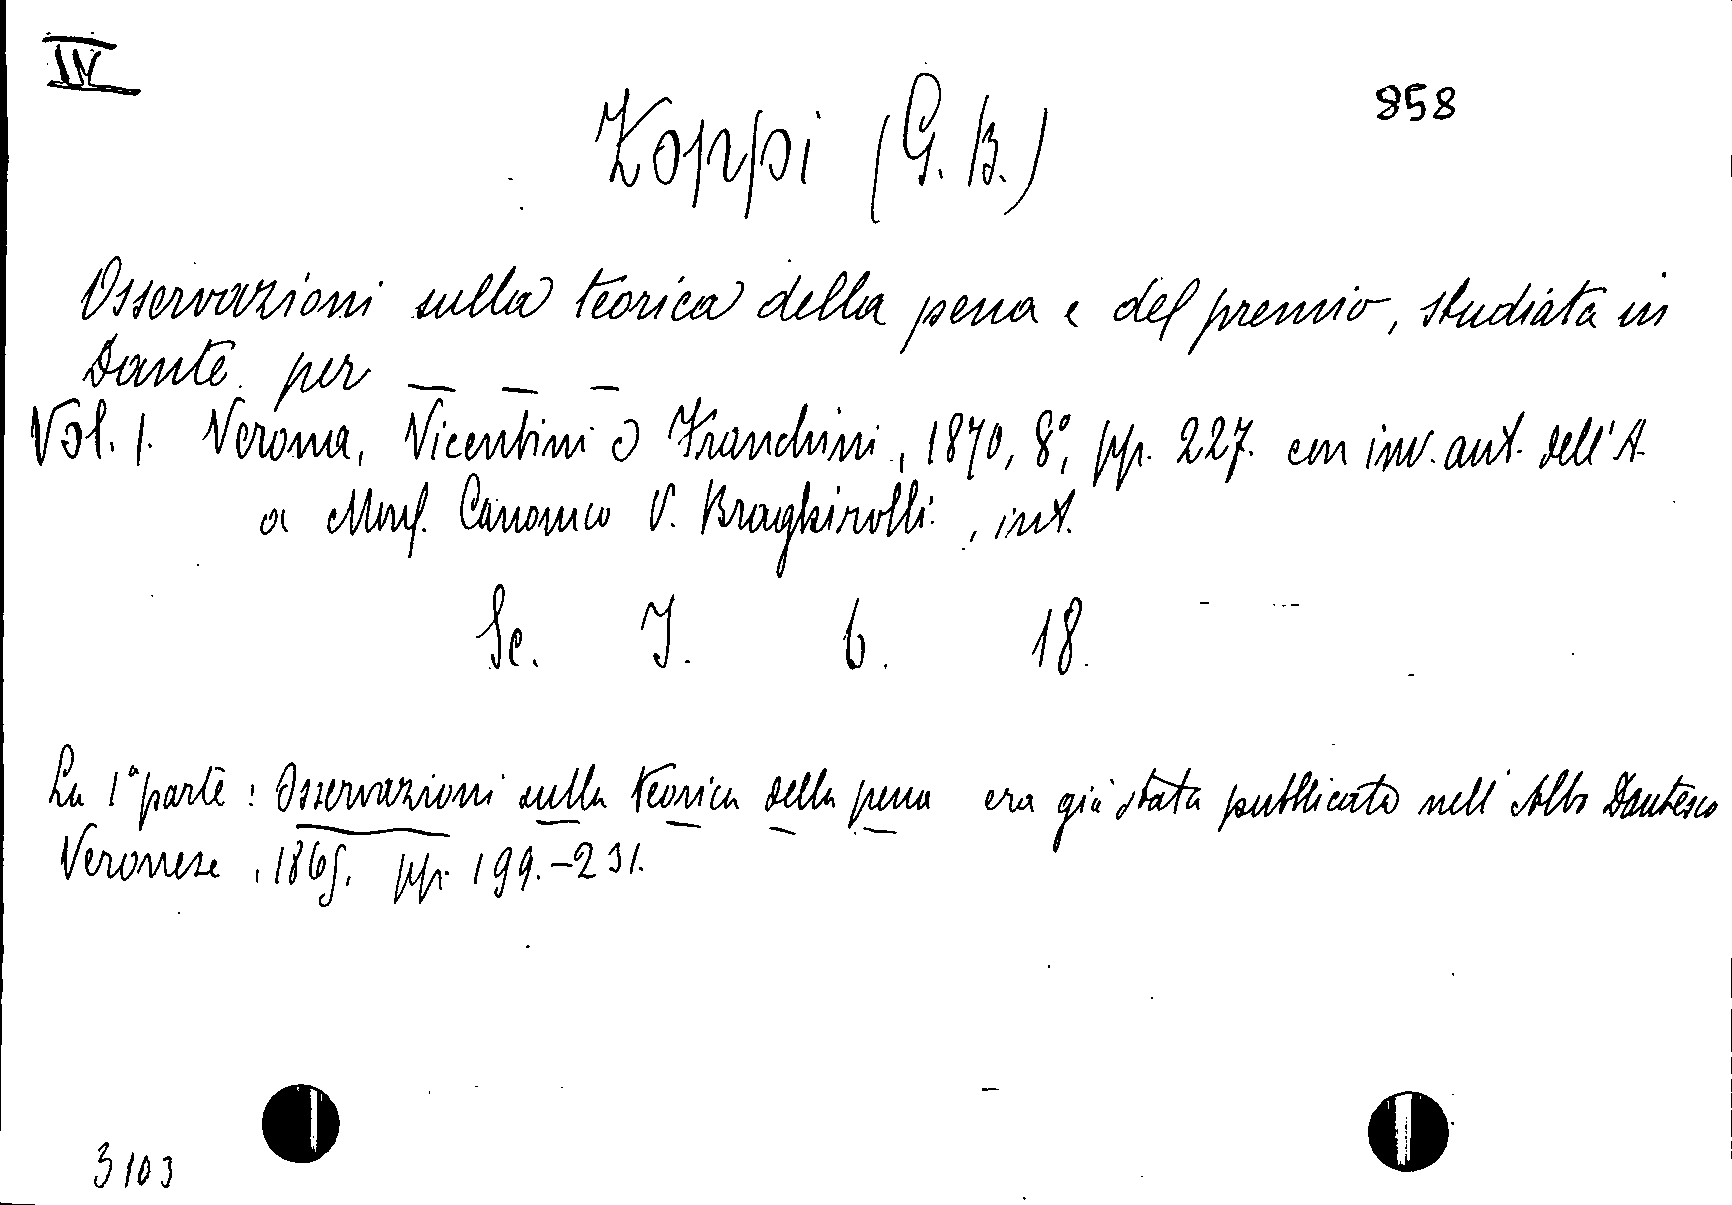 IV
858
Zoppi (G. B.)
Osservazioni sulla teorica della pena e del premio, studiata in
Dante per — — —
Vol. 1. Verona, Vicentini e Franchini, 1870, 8°, pp. 227. con inv. aut. dell'A.
a Mons. Canonico V. Braghirolli, int.
Sc. I. 6. 18.
La 1ª parte: Osservazioni sulla teorica della pena era già stata pubblicata nell'Albo Dantesco
Veronese, 1865, pp. 199.-231.
3103